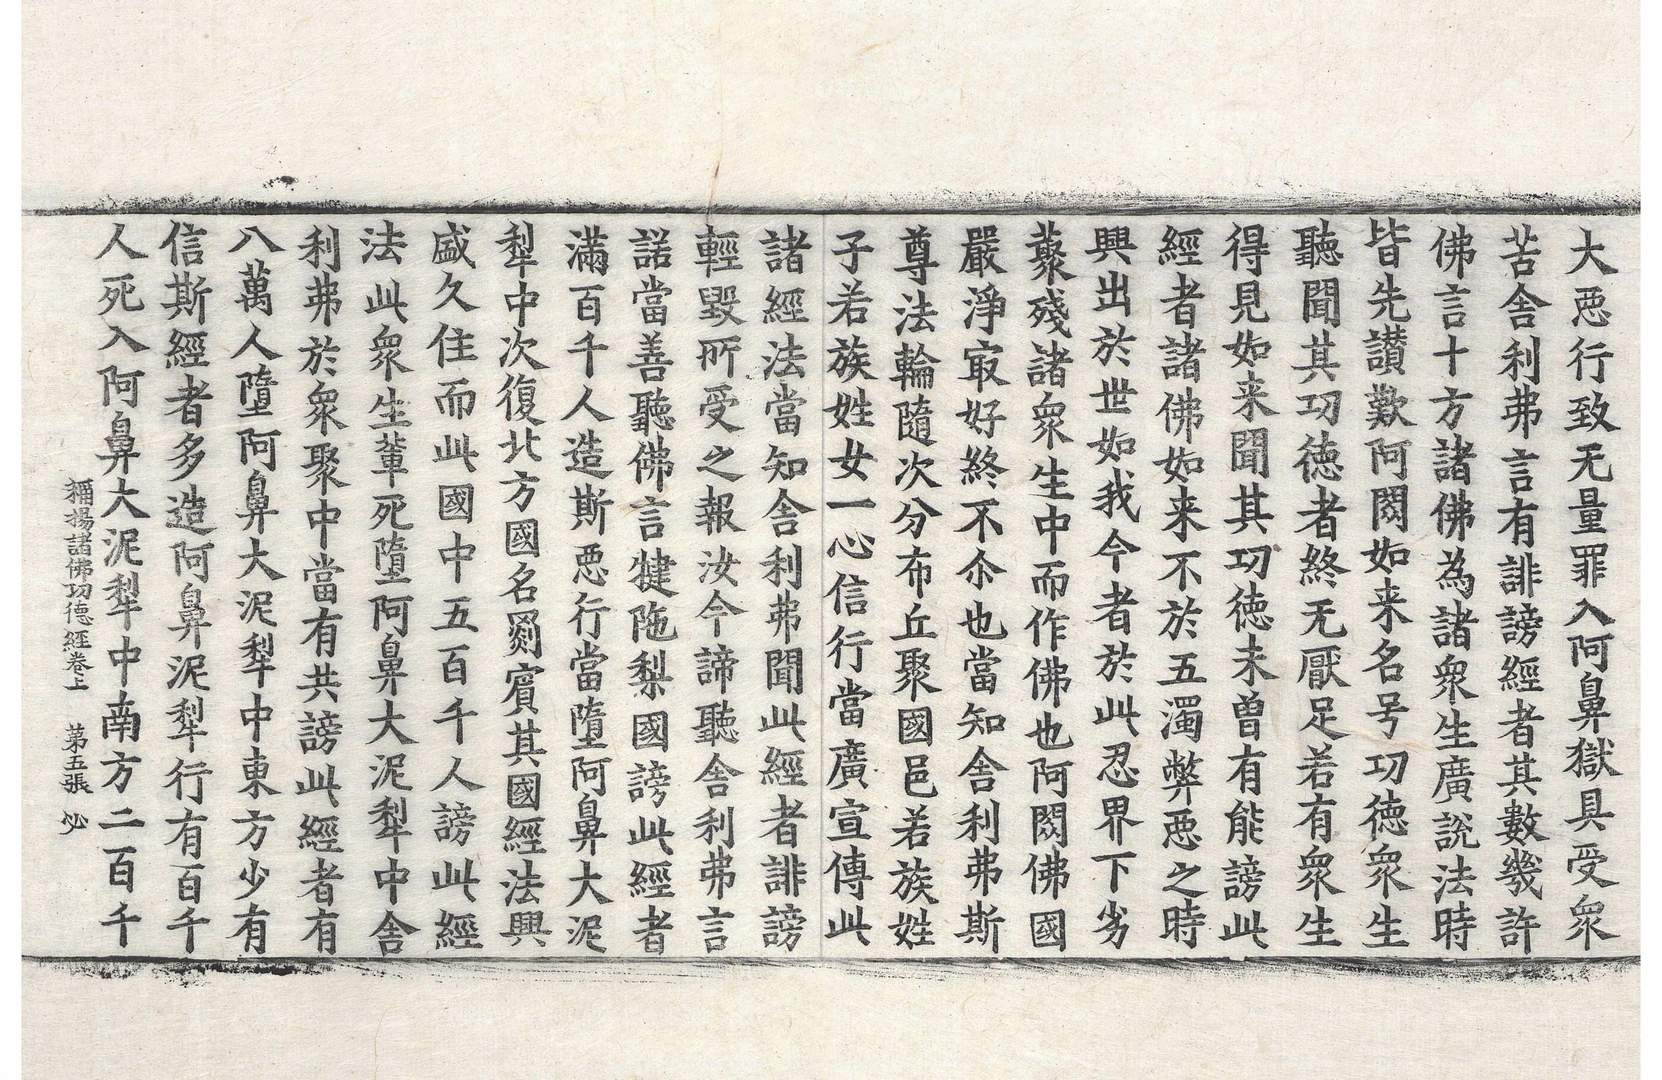 大惡行致无量罪入阿鼻獄具受衆
苦舍利弗言有誹謗經者其數幾許
佛言十方諸佛為諸衆生廣說法時
皆先讃歎阿閦如来名号功德衆生
聽聞其功德者終无厭足若有衆生
得見如来聞其功德未曾有能謗此
經者諸佛如来不於五濁弊惡之時
興出於世如我今者於此忍界下劣
藂殘諸衆生中而作佛也阿閦佛國
嚴淨㝡好終不尒也當知舍利弗斯
尊法輪隨次分布丘聚國邑若族姓
子若族姓女一心信行當廣宣傳此
諸經法當知舍利弗聞此經者誹謗
輕毀所受之報汝今諦聽舍利弗言
諾當善聽佛言犍陁梨國謗此經者
滿百千人造斯惡行當墮阿鼻大泥
犁中次復北方國名罽賓其國經法興
盛久住而此國中五百千人謗此經
法此衆生輩死墮阿鼻大泥犁中舍
利弗於衆聚中當有共謗此經者有
八萬人墮阿鼻大泥犁中東方少有
信斯經者多造阿鼻泥犁行有百千
人死入阿鼻大泥犁中南方二百千
稱揚諸佛功德經卷上　第五張　必